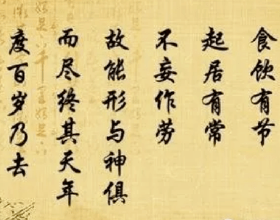 食饮有节
起居有常
不妄作劳
故能形与神俱
而尽终其天年
度百岁乃去